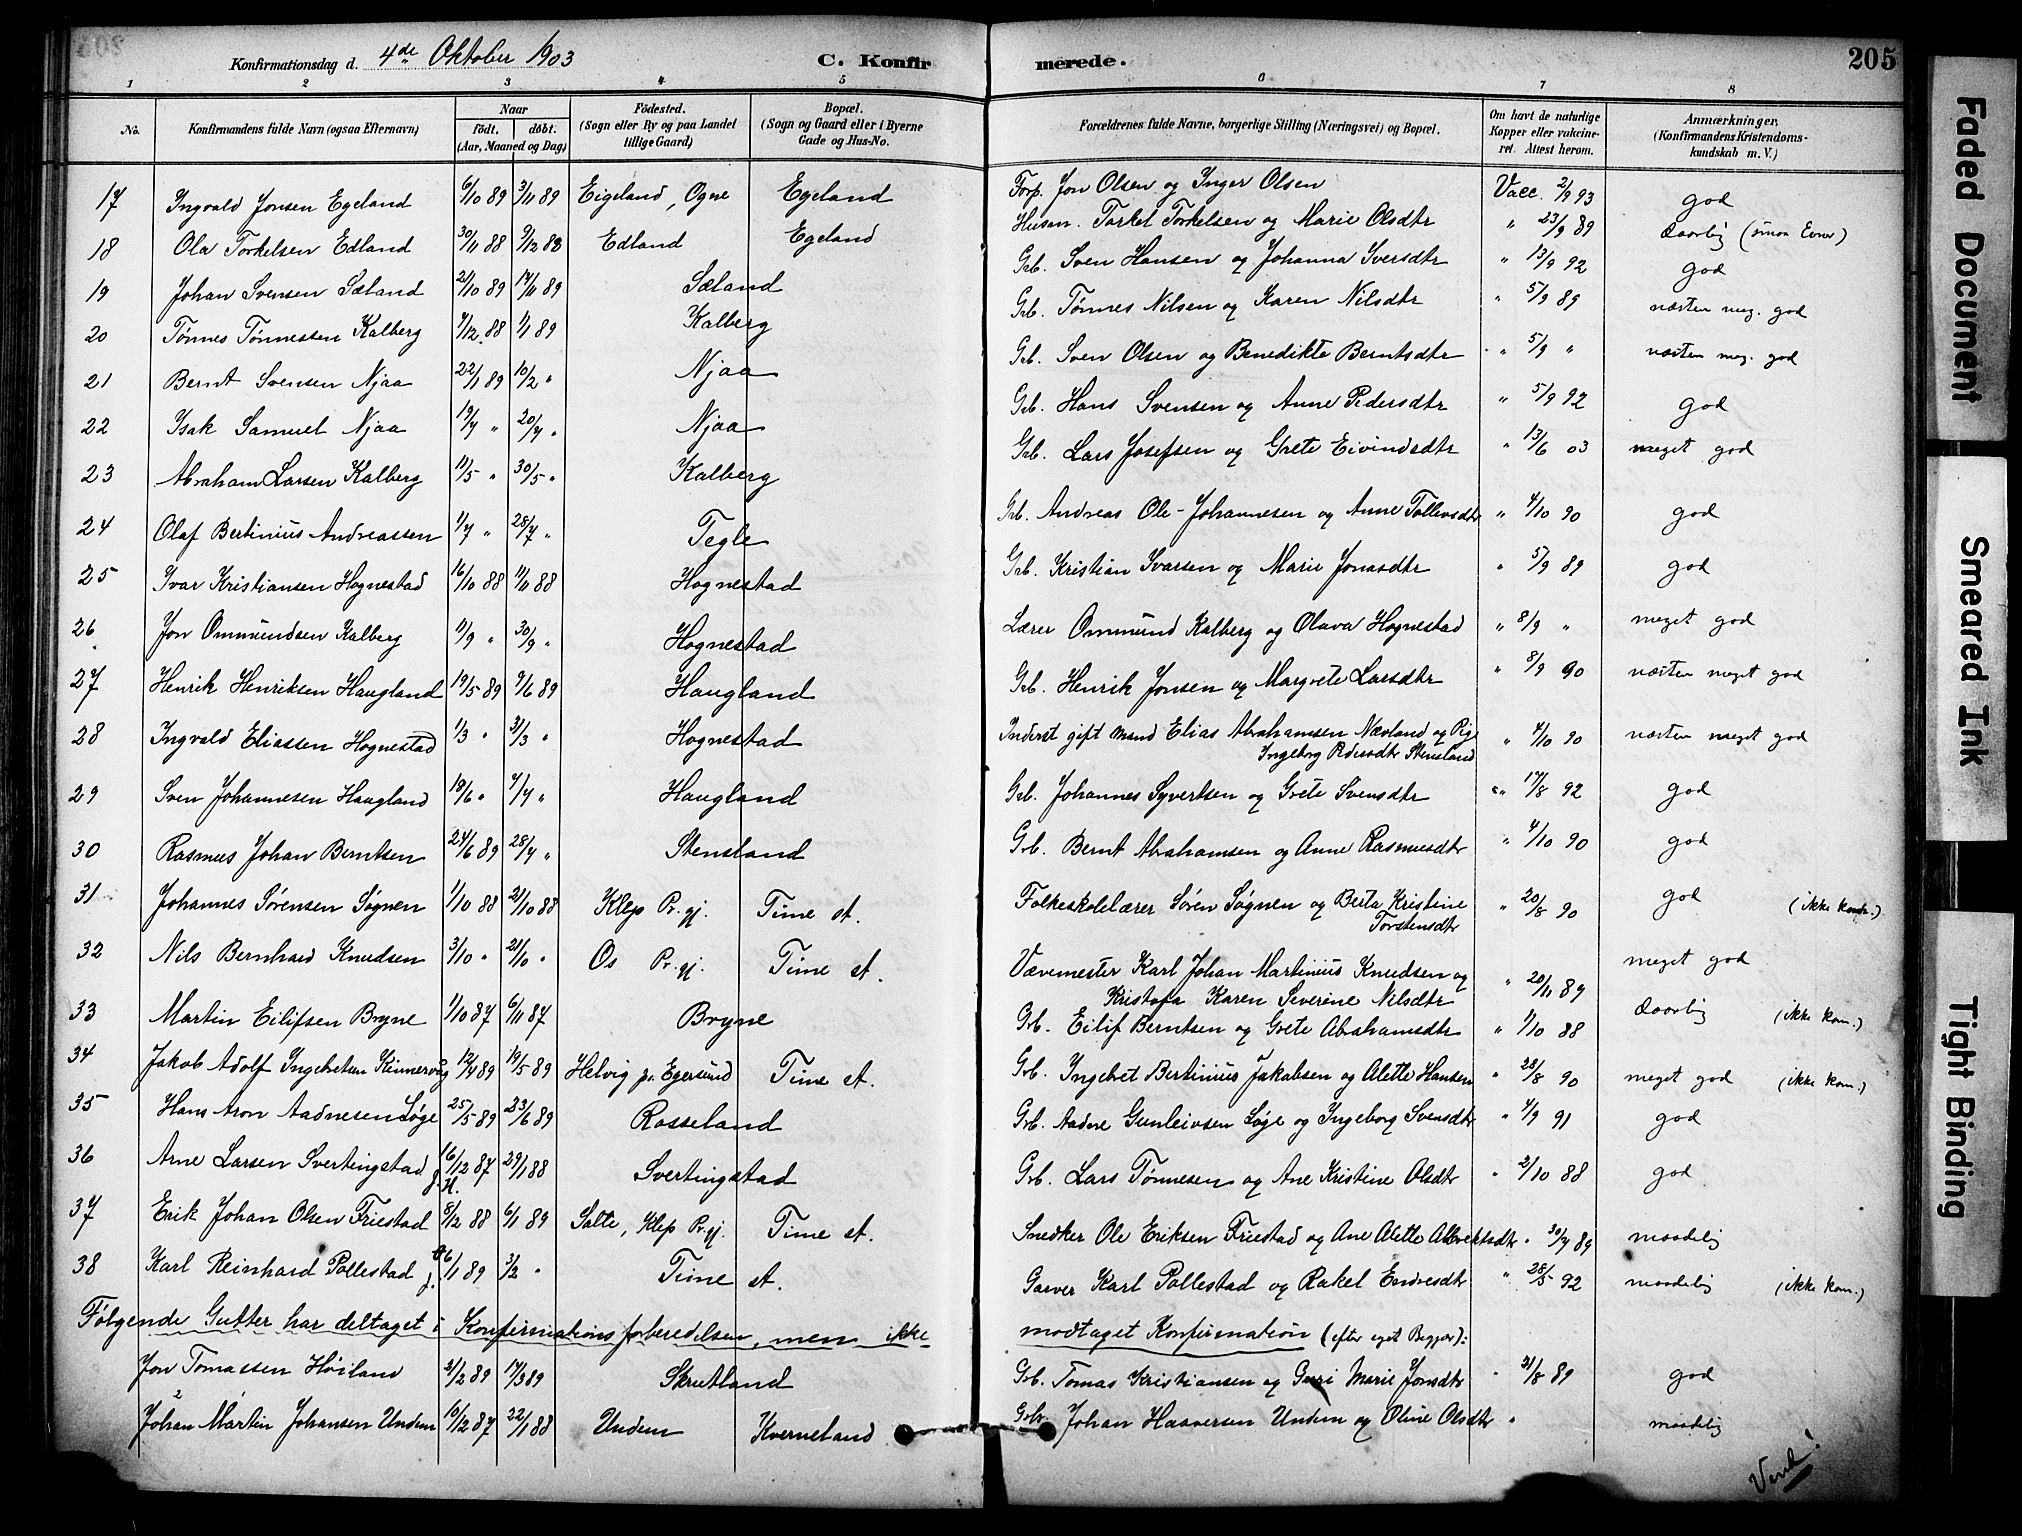 Konfirmationsdag d. 4de Oktober 1903 C. Konfirmerede. 205
1 2 3 4 5 6 7 8
No. Konfirmandens fulde Navn (ogsaa Efternavn) Naar født. døbt. (Aar, Maaned og Dag) Fødested. (Sogn eller By og paa Landet tillige Gaard) Bopæl. (Sogn og Gaard eller i Byerne Gade og Hus-No. Forældrenes fulde Navne, borgerlige Stilling (Næringsvei) og Bopæl. Om havt de naturlige Kopper eller vakcineret. Attest herom. Anmærkninger, (Konfirmandens Kristendomskundskab m. V.)
17 Ingvald Jonsen Egeland 6/10 89 3/11 89 Eigeland, Ogne Egeland Forp. Jon Olsen og Inger Olsen Vacc. 2/9 93 god
18 Ola Torkelsen Edland 30/11 88 9/12 88 Edland Egeland Husm. Torkel Torkelsen og Marie Olsdtr " 23/9 89 daarlig (smaa Evner)
19 Johan Svensen Sæland 21/10 89 17/11 89 Sæland Grb. Sven Hansen og Johanna Sversdtr " 13/9 92 god
20 Tønnes Tønnessen Kalberg 9/12 88 1/1 89 Kalberg Grb. Tønnes Nilsen og Karen Nilsdtr " 5/9 89 næsten meg. god
21 Bernt Svensen Njaa 22/1 89 10/2 " Njaa Grb. Sven Olsen og Benedikte Berntsdtr " 5/9 " næsten meg. god
22 Isak Samuel Njaa 19/4 " 20/4 " Njaa Grb. Hans Svensen og Anne Pedersdtr " 5/9 92 god
23 Abraham Larsen Kalberg 11/5 " 30/5 " Kalberg Grb. Lars Josefsen og Grete Eivindsdtr " 13/6 03 meget god
24 Olaf Bertinius Andreassen 1/7 " 28/7 " Tegle Grb. Andreas Ole-Johannesen og Anne Tollevsdtr " 4/10 90 god
25 Ivar Kristiansen Hognestad 16/10 88 11/11 88 Hognestad Grb. Kristian Ivarsen og Marie Jonasdtr " 5/9 89 god
26 Jon Ommundsen Kalberg 11/9 " 30/9 " Hognestad Lærer Ommund Kalberg og Olava Hognestad " 8/9 " meget god
27 Henrik Henriksen Haugland 19/5 89 9/6 89 Haugland Grb. Henrik Jonsen og Margrete Larsdtr " 8/9 90 næsten meget god
28 Ingvald Eliassen Hognestad 1/3 " 31/3 " Hognestad Inderst gift Mand Elias Abrahamsen Nærland og Pige Ingeborg Pedersdtr Stensland " 4/10 90 næsten meget god
29 Sven Johannesen Haugland 18/6 " 7/7 " Haugland Grb. Johannes Syvertsen og Grete Svensdtr " 17/8 92 god
30 Rasmus Johan Berntsen 24/6 89 28/7 " Stensland Grb. Bernt Abrahamsen og Anne Rasmusdtr " 4/10 90 god
31 Johannes Sørensen Søgnen 1/10 88 21/10 88 Klep Pr.gj. Time st. Folkeskolelærer Søren Søgnen og Berta Kristine Torstensdtr " 20/8 90 god (ikke kom.)
32 Nils Bernhard Knudsen 3/10 " 21/10 " Os Pr.gj. Time st. Vævemester Karl Johan Martinius Knudsen og Kristofa Karen Severine Nilsdtr " 20/11 89 meget god
33 Martin Eilifsen Bryne 1/10 87 6/11 87 Bryne Grb. Eilif Berntsen og Grete Abrahamsdtr " 9/10 88 daarlig (ikke kom.)
34 Jakob Adolf Ingebretsen Kinnervåg 12/4 89 19/5 89 Helvig pr. Egersund Time st. Grb. Ingebret Bertinius Jakobsen og Alette Hansen " 28/8 90 meget god (ikke kom.)
35 Hans Aron Aadnesen Løge 25/5 89 23/6 89 Rosseland Grb. Aadne Gunleivsen Løge og Ingeborg Svensdtr " 4/9 91 god
36 Arne Larsen Svertingstad 16/12 87 29/1 88 Svertingstad Grb. Lars Tønnesen og Ane Kristine Olsdtr " 2/10 88 god
37 Erik Johan Olsen Friestad 8/12 88 6/1 89 Salte, Klep Pr.gj. Time st. Snedker Ole Eriksen Friestad og Ane Alette Albrektsdtr " 30/7 89 maadelig
38 Karl Reinhard Pollestad 6/1 89 3/2 " Time st. Garver Karl Pollestad og Rakel Endresdtr " 28/5 92 maadelig (ikke kom.)
Følgende Gutter har deltaget i Konfirmationsforberedelsen, men ikke modtaget Konfirmation (efter eget Begjær):
Jon Tomassen Høiland 3/2 89 17/3 89 Skrutland Grb. Tomas Kristiansen og Guri Marie Jonsdtr " 31/8 89 god
2 Johan Martin Johansen Undem 10/12 87 22/1 88 Undem Kverneland Grbr. Johan Haaversen Undem og Oline Olsdtr " maadelig
Vend!
Faded Document
Smeared Ink
Tight Binding